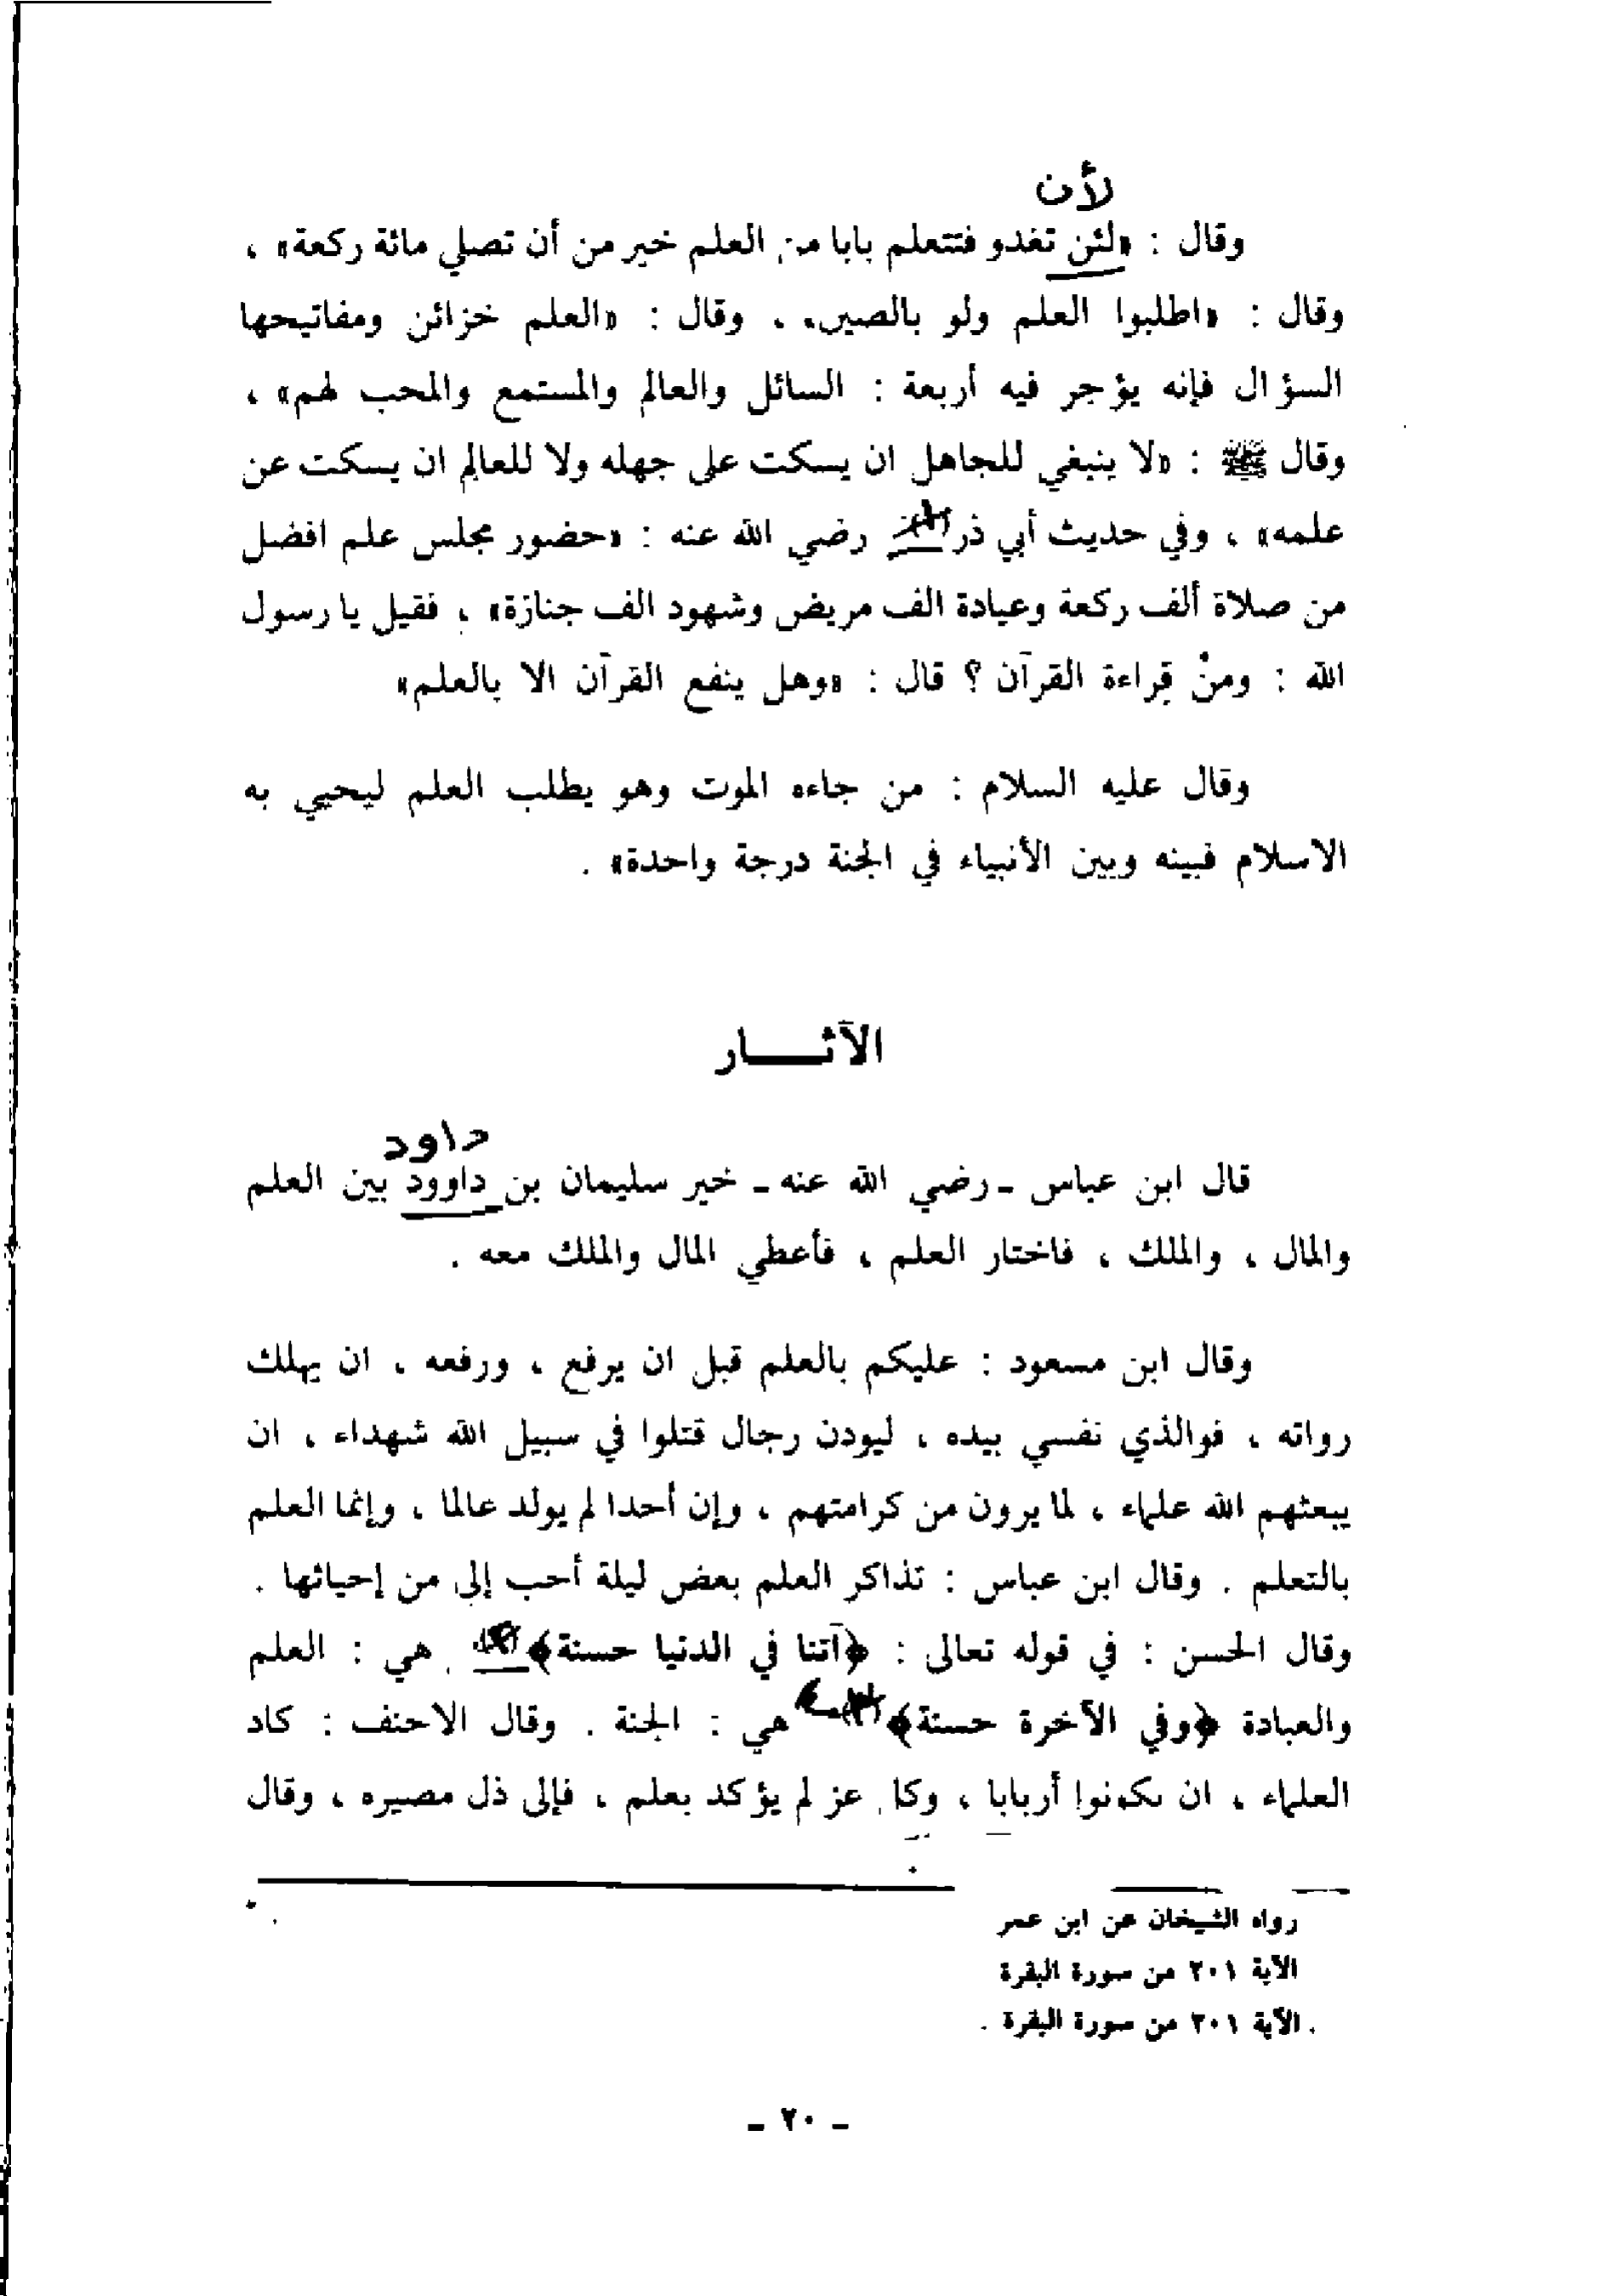 لأن
وقال : «لئن تغدو فتتعلم بابا من العلم خير من أن تصلي مائة ركعة» ،
وقال : «اطلبوا العلم ولو بالصين» ، وقال : «العلم خزائن ومفاتيحها
السؤال فإنه يؤجر فيه أربعة : السائل والعالم والمستمع والمحب لهم» ،
وقال ﷺ : «لا ينبغي للجاهل ان يسكت على جهله ولا للعالم ان يسكت عن
علمه» ، وفي حديث أبي ذر (١) رضي الله عنه : «حضور مجلس علم افضل
من صلاة ألف ركعة وعيادة الف مريض وشهود الف جنازة» ، فقيل يا رسول
الله : ومنْ قراءة القرآن ؟ قال : «وهل ينفع القرآن الا بالعلم»
وقال عليه السلام : من جاءه الموت وهو يطلب العلم ليحيي به
الاسلام فبينه وبين الأنبياء في الجنة درجة واحدة» .
الآثـــار
داود
قال ابن عباس ـ رضي الله عنه ـ خير سليمان بن داوود بين العلم
والمال ، والملك ، فاختار العلم ، فأعطي المال والملك معه .
وقال ابن مسعود : عليكم بالعلم قبل ان يرفع ، ورفعه ، ان يهلك
رواته ، فوالذي نفسي بيده ، ليودن رجال قتلوا في سبيل الله شهداء ، ان
يبعثهم الله علماء ، لما يرون من كرامتهم ، وإن أحدا لم يولد عالما ، وإنما العلم
بالتعلم . وقال ابن عباس : تذاكر العلم بعض ليلة أحب إلى من إحيائها .
وقال الحسن : في قوله تعالى : ﴿آتنا في الدنيا حسنة﴾ هي : العلم
والعبادة ﴿وفي الآخرة حسنة﴾ هي : الجنة . وقال الاحنف : كاد
العلماء ، ان يكونوا أربابا ، وكل عز لم يؤكد بعلم ، فإلى ذل مصيره ، وقال
رواه الشيخان عن ابن عمر
الآية ٢٠١ من سورة البقرة
الآية ٢٠١ من سورة البقرة .
ـ ٢٠ ـ